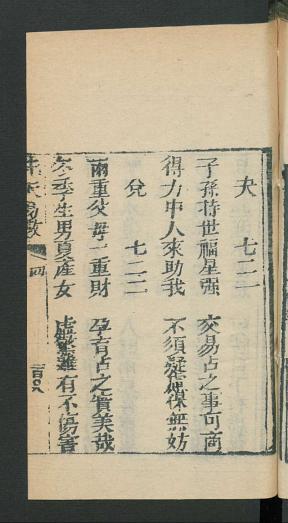 夬 七二二
子孫持世福星強 交易占之事可商
得力中人來助我 不須疑慮保無妨
兌 七二二
兩重父母一重財 孕育占之實美哉
冬季生男夏產女 虛驚雖有不傷害
先天易數 四 二百〇八